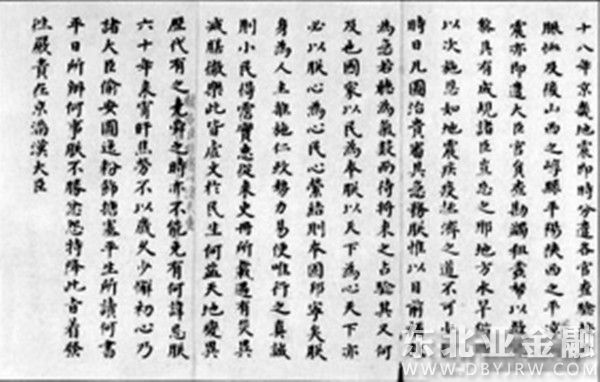 十八年京畿地震即時分遣各官查驗
賑恤及後山西之崞縣平陽陝西之平涼
震亦即遣大臣官員查勘蠲租發帑以
具有成規諸臣豈忘之耶地方水旱
以次施恩如地震疾疫拯濟之道不可少
時日凡圖治貴審其急務朕惟以目前
為急若聽為氣數而待將來之占驗其又何
及也國家以民為本朕以天下為心天下亦
必以朕心為心民心縈結則本固邦寧矣朕
身為人主雖施仁政勢力易便唯行之真誠
則小民得霑實惠從來史冊所載遇有災異
減膳徹樂此皆虛文於民生何益天地變異
歷代有之堯舜之時亦不能免有何諱忌朕
六十年來宵旰焦勞不以歲久少懈初心乃
諸大臣偷安圖逸粉飾搪塞平生所讀何書
平日所辦何事朕不勝忿怒特降此旨着發
往嚴責在京滿漢大臣
东北亚金融
WWW.DBYJRW.COM